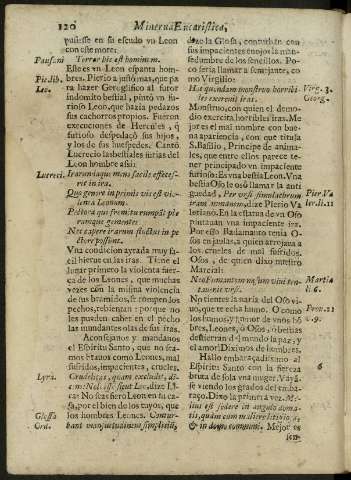 120
Minerva Eucaristica,
pusiesse en su escudo vn Leon
con este mote:
Pausani
Terror hic est hominum.
Este es vn Leon espanta hom-
Pie.lib.
bres. Pierio a justò mas, que pa
Leo.
ra hazer Geroglifico al furor
indomito bestial, pintò vn fu-
rioso Leon, que hazia pedazos
sus cachorros propios. Fueron
execuciones de Hercules, q
furioso despedaçò sus hijos,
y los de sus huespedes. Cantò
Lucrecio las bestiales furias del
Leon hombre assi:
Lucreci.
in ira.
Quo genere in primis vis est vio-
lenta Leonum.
Pectora qui fremitu rumpũt ple
rumque gementes
Nec capere irarum fluctus in pe
ctore possunt.
Vna condicion ayrada muy fa-
cil hierue en las iras. Tiene el
lugar primero la violenta fuer-
ça de los Leones, que muchas
vezes con la misma violencia
de sus bramidos, se rompen los
pechos, rebientan: porque no
les pueden caber en el pecho
las inundantes olas de sus iras.
Aconsejanos y mandanos
el Espiritu Santo, que no sea-
mos brauos como Leones, mal
sufridos, impacientes, crueles.
Lyra.
Crudelitas, quam excludit, di-
cens: Noli esse sicut Leo, dize Ly-
ra: No seas fiero Leon en tu ca-
sa, por el bien de los tuyos, que
Glossa
los hombres Leones. Contur-
Ord.
bant
dize la Glosa, conturban con
sus impacientes enojos la man-
sedumbre de los sencillos. Po-
co seria llamar a semejante, co
mo Virgilio:
Virg. 3.
Georg.
Hos quondam monstrum horribi-
les exercuit iras.
Monstruo, con quien el demo-
dio exercita horribles iras. Me
jor es el mal nombre con bue-
na apariencia, con que titula
S. Basilio, Principe de anima-
les, que entre ellos parece te-
ner principado vn impaciente
furioso: Es vna bestia Leon. Vna
bestia Oso le osò llamar la anti
guedad, Per vrsi simulachrum
Pier. Va
iram immanem, dize Pierio Va
ler. li. 11
leriano. En la estatua de vn Oso
pintauan vna impaciente ira.
Por esso Radamanto tenia O-
sos en jaulas, a quien arrojaua a
los crueles de mal sufridos.
Osos, de quien dixo nuestro
Marcial:
Martia
li. 6.
No tientes la nariz del Oso vi-
uo, que te echa humo. O como
Prou. 22
los humos, y humor de vnos hõ
v. 9.
bres, Leones, ò Osos, ò bestias
destierran del mundo la paz, y
el amor! Diximos de hombres.
Hallo embaraçadissimo al
6
Espiritu Santo con la fiereza
bruta de sola vna muger. Vayã-
se viendo los grados del emba-
raço. Dixo la primera vez. Me-
lius est sedere in angulo doma-
tis, quàm cum muliere litigiosa,
& in domo communi. Mejor es